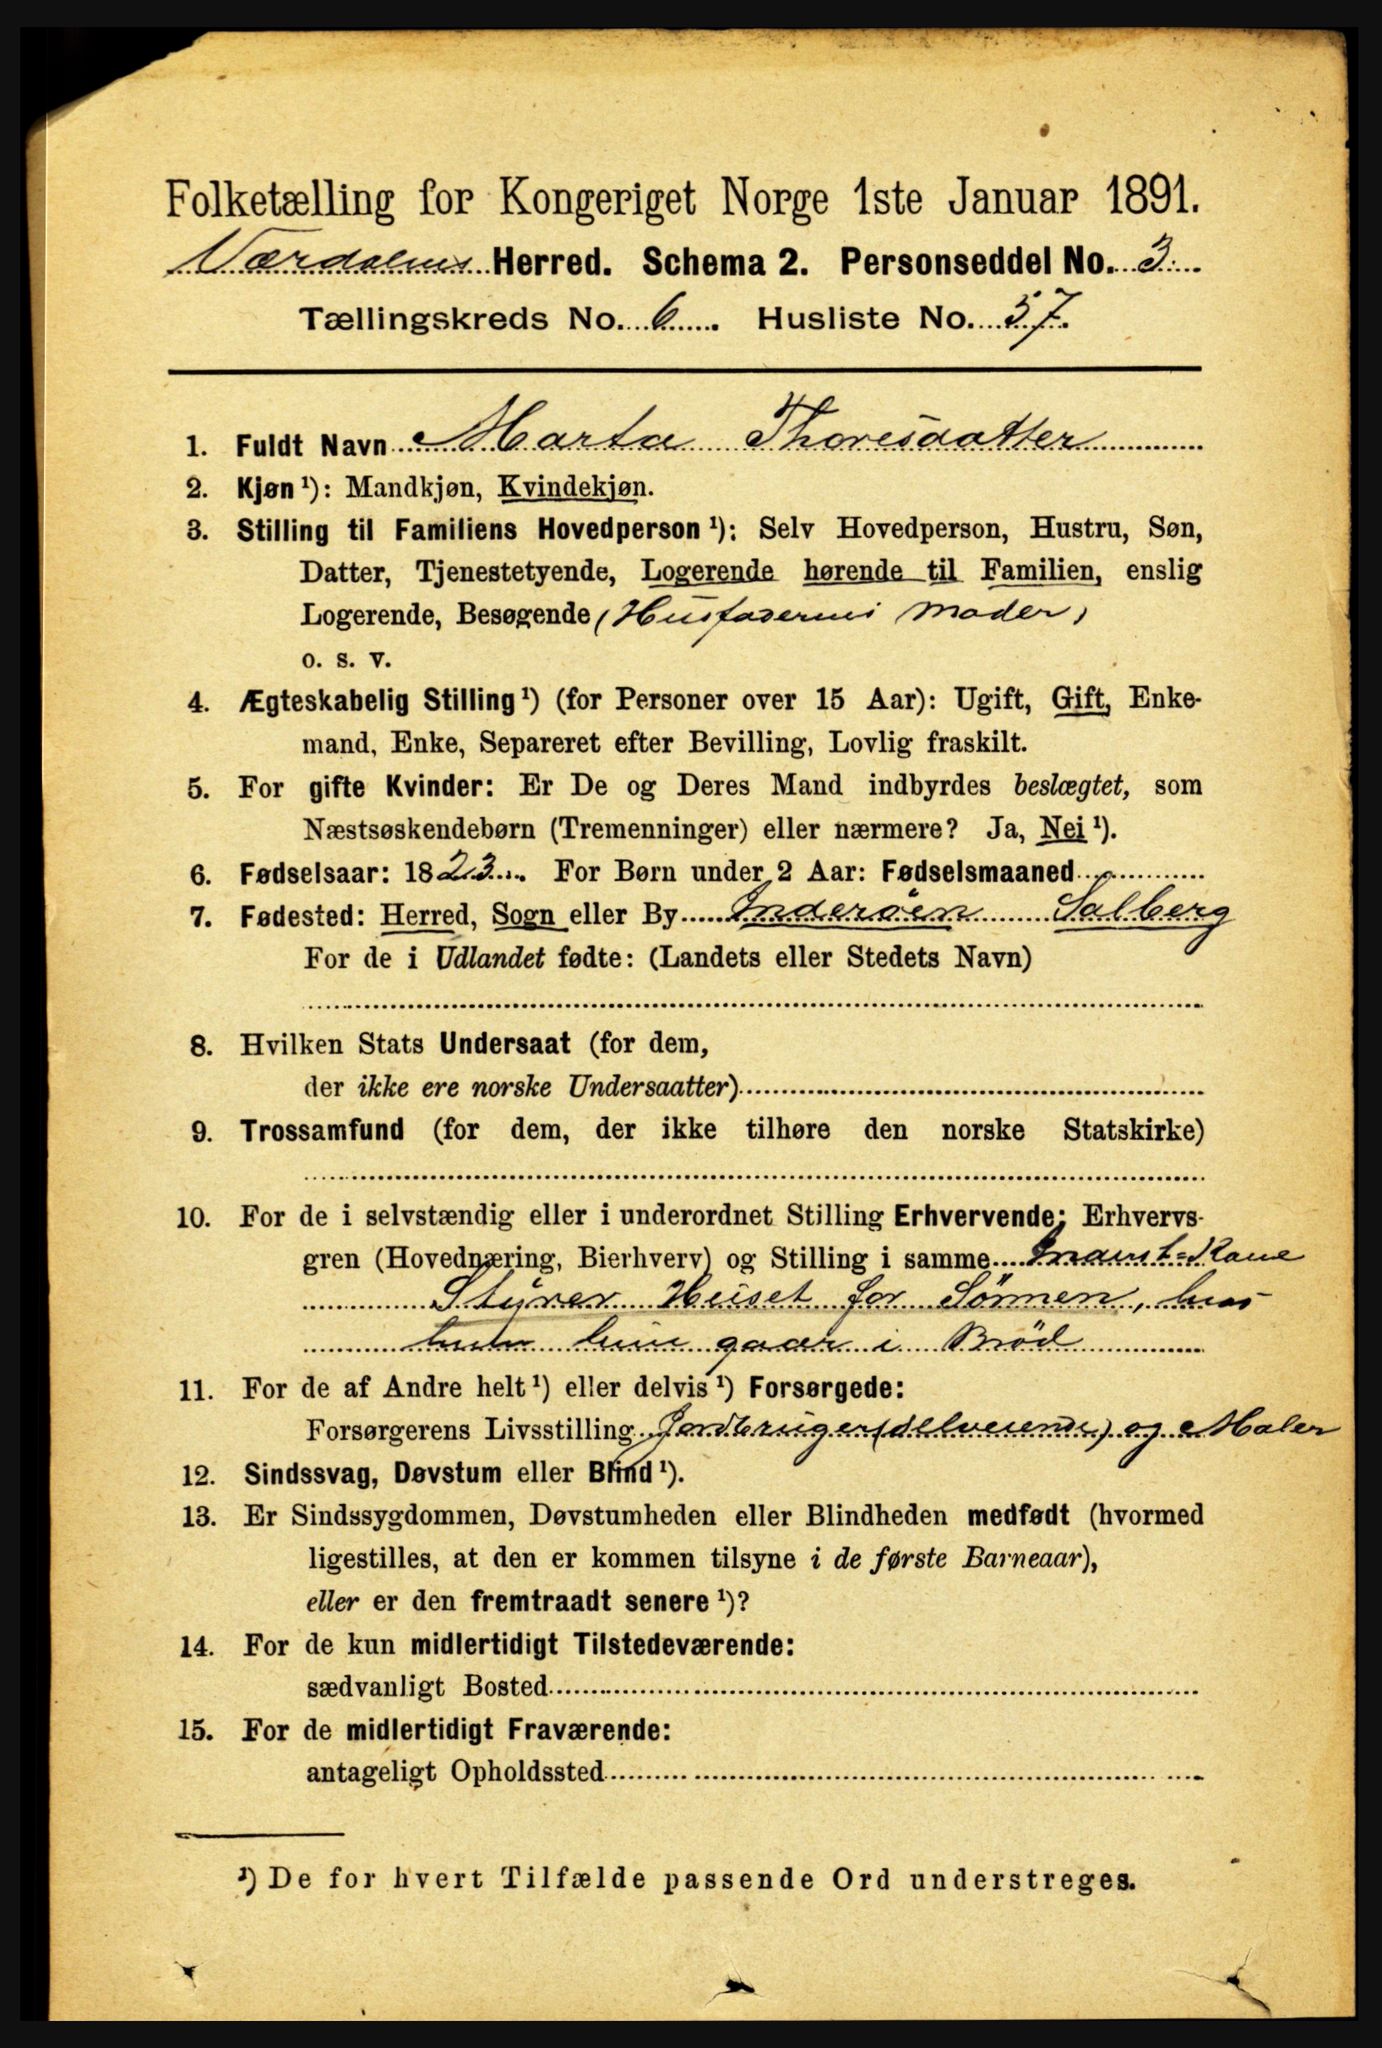 Folketælling for Kongeriget Norge 1ste Januar 1891.
Værdalens Herred. Schema 2. Personseddel No. 3
Tællingskreds No. 6. Husliste No. 57.
1. Fuldt Navn Marta Thoresdatter
2. Kjøn ¹): Mandkjøn, Kvindekjøn.
3. Stilling til Familiens Hovedperson ¹): Selv Hovedperson, Hustru, Søn,
Datter, Tjenestetyende, Logerende hørende til Familien, enslig
Logerende, Besøgende (Husfaderens Moder)
o. s. v.
4. Ægteskabelig Stilling ¹) (for Personer over 15 Aar): Ugift, Gift, Enke-
mand, Enke, Separeret efter Bevilling, Lovlig fraskilt.
5. For gifte Kvinder: Er De og Deres Mand indbyrdes beslægtet, som
Næstsøskendebørn (Tremenninger) eller nærmere? Ja, Nei ¹).
6. Fødselsaar: 1823. For Børn under 2 Aar: Fødselsmaaned
7. Fødested: Herred, Sogn eller By Inderøen Salberg
For de i Udlandet fødte: (Landets eller Stedets Navn)
8. Hvilken Stats Undersaat (for dem,
der ikke ere norske Undersaatter)
9. Trossamfund (for dem, der ikke tilhøre den norske Statskirke)
10. For de i selvstændig eller i underordnet Stilling Erhvervende: Erhvervs-
gren (Hovednæring, Bierhverv) og Stilling i samme Inderst=Kone
Styrer Huset for Sønnen, hos
hvem hun gaar i Brød
11. For de af Andre helt ¹) eller delvis ¹) Forsørgede:
Forsørgerens Livsstilling Jordbruger (selveiende) og Maler
12. Sindssvag, Døvstum eller Blind ¹).
13. Er Sindssygdommen, Døvstumheden eller Blindheden medfødt (hvormed
ligestilles, at den er kommen tilsyne i de første Barneaar),
eller er den fremtraadt senere ¹)?
14. For de kun midlertidigt Tilstedeværende:
sædvanligt Bosted
15. For de midlertidigt Fraværende:
antageligt Opholdssted
¹) De for hvert Tilfælde passende Ord understreges.